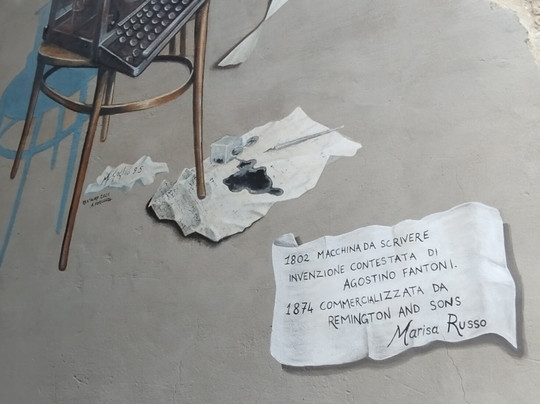 1802 MACCHINA DA SCRIVERE
INVENZIONE CONTESTATA DI
AGOSTINO FANTONI.
1874 COMMERCIALIZZATA DA
REMINGTON AND SONS
Marisa Russo